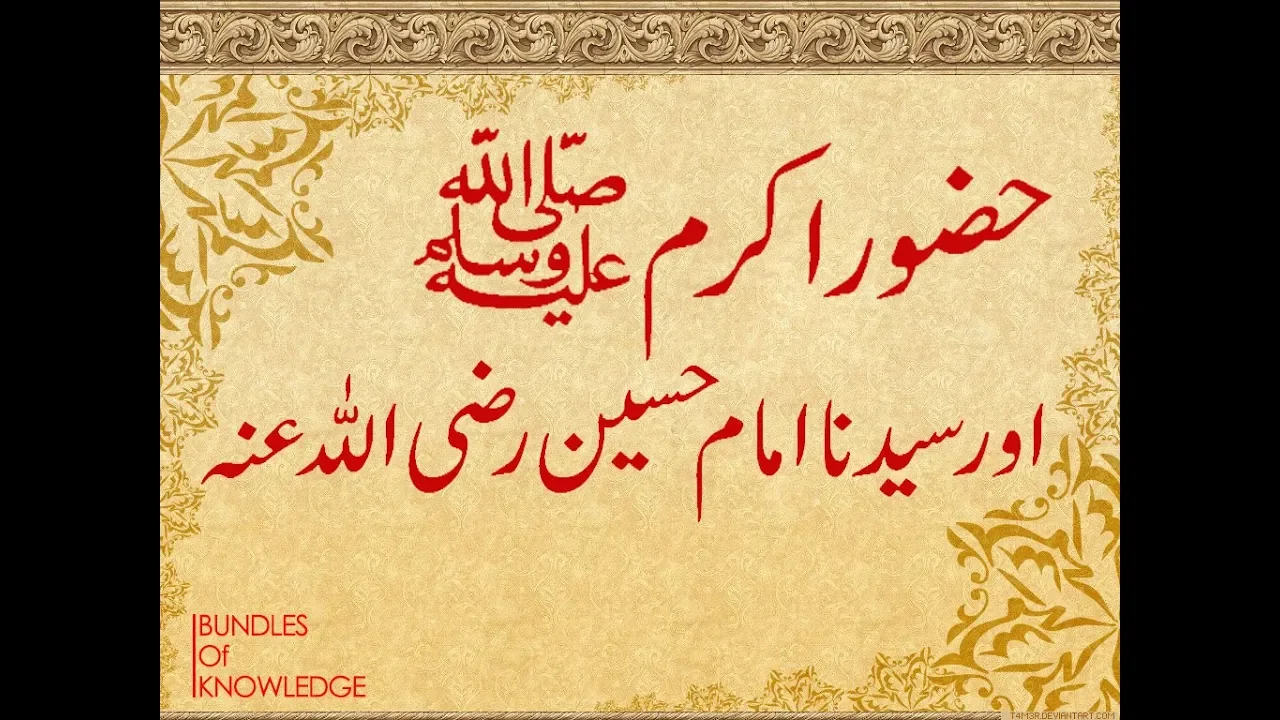 حضور اکرم صلی اللہ علیہ وسلم
اور سیدنا امام حسین رضی اللہ عنہ
BUNDLES
Of
KNOWLEDGE
T4M3R.DEVIANTART.COM